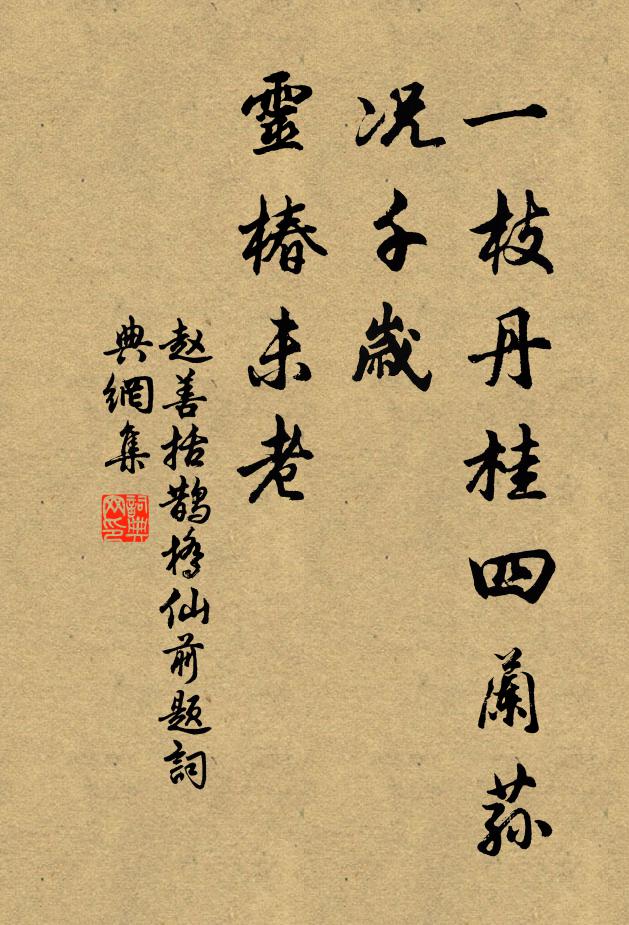 一枝丹桂四蘭蓀
况千歲
靈椿未老
赵善括鵲橋仙前題詞
典網集
詞典
网印